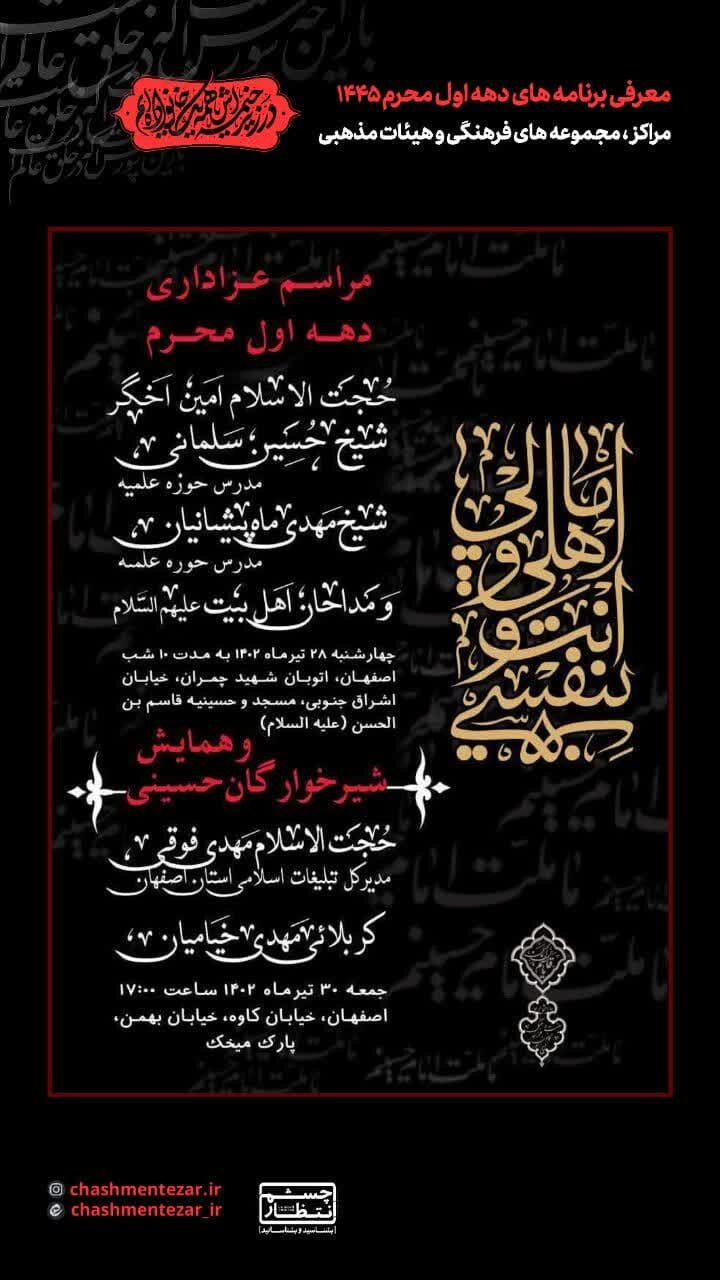 معرفی برنامه های دهه اول محرم ۱۴۴۵
مراکز ، مجموعه های فرهنگی و هیئات مذهبی
مراسم عزاداری
دهه اول محرم
حجت الاسلام امین اخگر
شیخ حسین سلمانی
مدرس حوزه علمیه
شیخ مهدی ماه پیشانیان
مدرس حوزه علمیه
و مداحان اهل بیت علیهم السلام
چهارشنبه ۲۸ تیر ماه ۱۴۰۲ به مدت ۱۰ شب
اصفهان، اتوبان شهید چمران، خیابان
اشراق جنوبی، مسجد و حسینیه قاسم بن
الحسن (علیه السلام)
و همایش
شیرخوارگان حسینی
حجت الاسلام مهدی فوقی
مدیرکل تبلیغات اسلامی استان اصفهان
کربلائی مهدی خیامیان
جمعه ۳۰ تیر ماه ۱۴۰۲ ساعت ۱۷:۰۰
اصفهان، خیابان کاوه، خیابان بهمن،
پارک میخک
مالی
اهلی و
انت و
نفسی
ما ملت امام حسینیم
chashmentezar.ir
chashmentezar_ir
چشم
انتظار
بشناسید و بشناسانید